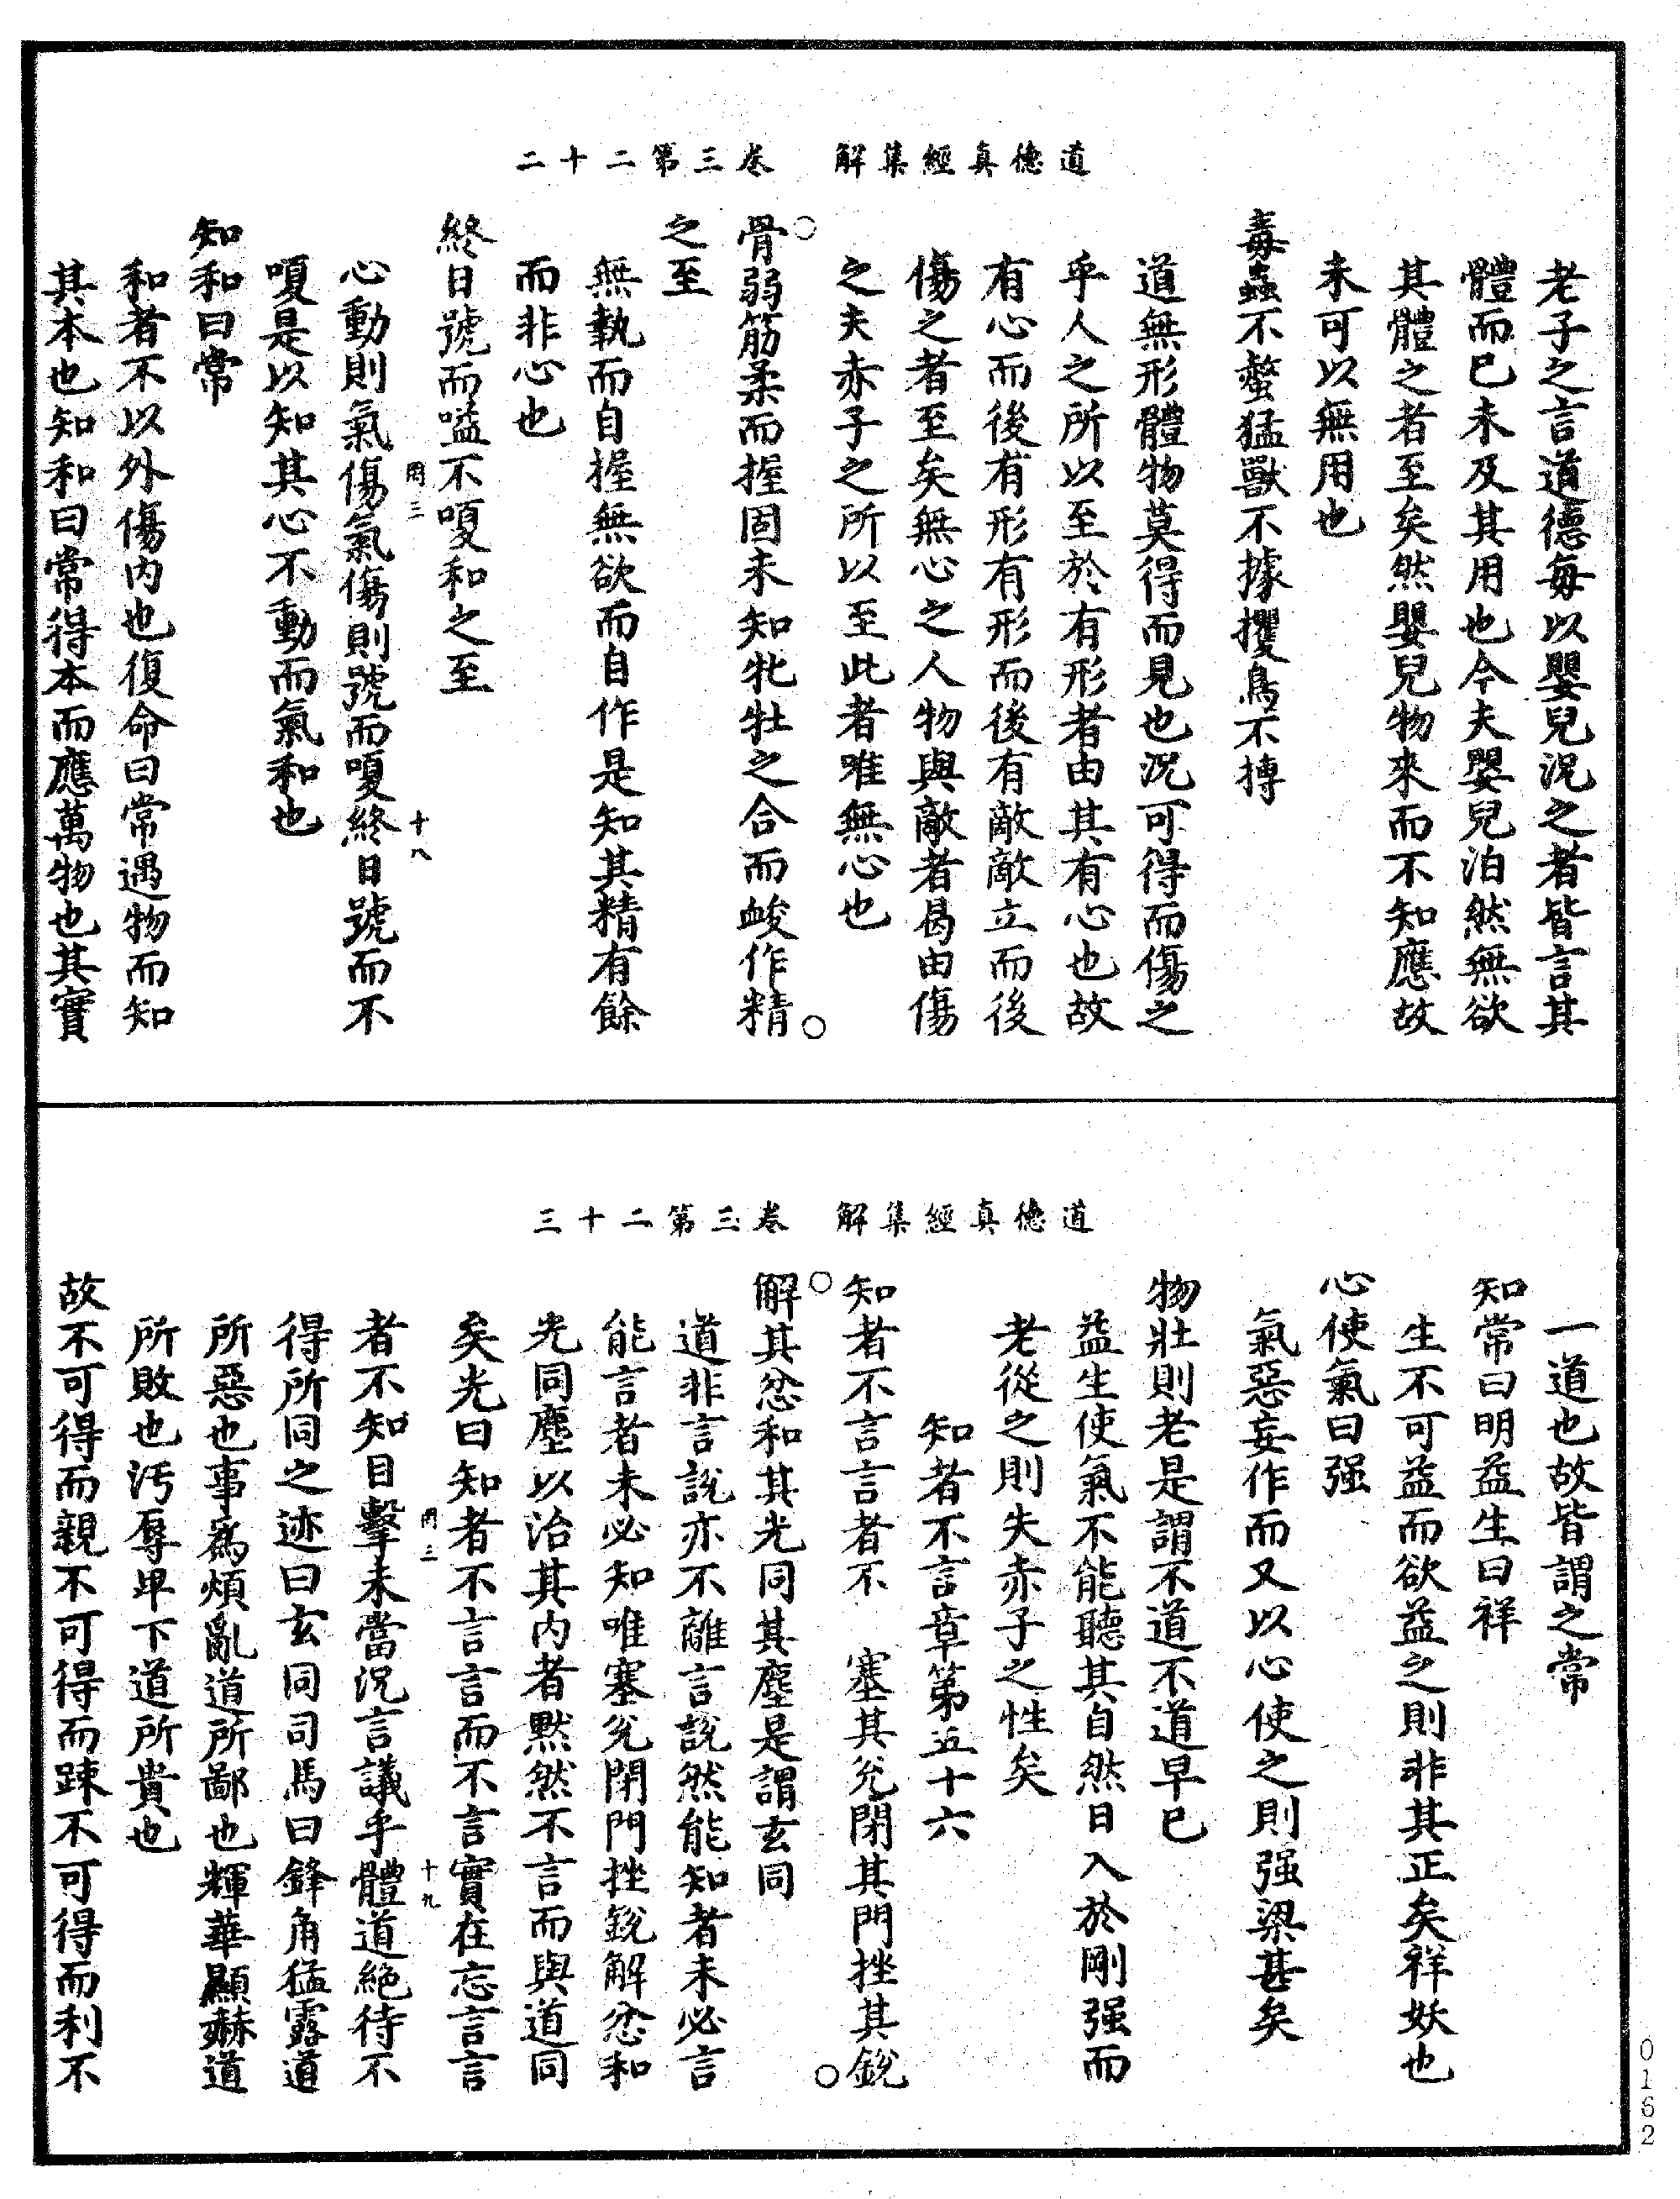 道德真經集解　卷三第二十二
老子之言道德每以嬰兒況之者皆言其
體而已未及其用也今夫嬰兒泊然無欲
其體之者至矣然嬰兒物來而不知應故
未可以無用也
毒蟲不螫猛獸不據攫鳥不摶
道無形體物莫得而見也況可得而傷之
乎人之所以至於有形者由其有心也故
有心而後有形有形而後有敵敵立而後
傷之者至矣無心之人物與敵者曷由傷
之夫赤子之所以至此者唯無心也
○骨弱筋柔而握固未知牝牡之合而峻作精○
之至
無執而自握無欲而自作是知其精有餘
而非心也
終日號而嗌不嗄和之至
罔三　十八
心動則氣傷氣傷則號而嗄終日號而不
嗄是以知其心不動而氣和也
知和曰常
和者不以外傷內也復命曰常遇物而知
其本也知和曰常得本而應萬物也其實
道德真經集解　卷三第二十三
一道也故皆謂之常
知常曰明益生曰祥
生不可益而欲益之則非其正矣祥妖也
心使氣曰强
氣惡妄作而又以心使之則强梁甚矣
物壯則老是謂不道不道早已
益生使氣不能聽其自然日入於剛强而
老從之則失赤子之性矣
知者不言章第五十六
知者不言言者不　塞其兊閉其門挫其銳
○解其忿和其光同其塵是謂玄同○
道非言說亦不離言說然能知者未必言
能言者未必知唯塞兊閉門挫銳解忿和
光同塵以治其內者默然不言而與道同
矣光曰知者不言言而不言實在忘言言
罔三　十九
者不知目擊未當況言議乎體道絶待不
得所同之迹曰玄同司馬曰鋒角猛露道
所惡也事爲煩亂道所鄙也輝華顯赫道
所敗也汚辱卑下道所貴也
故不可得而親不可得而踈不可得而利不
0162